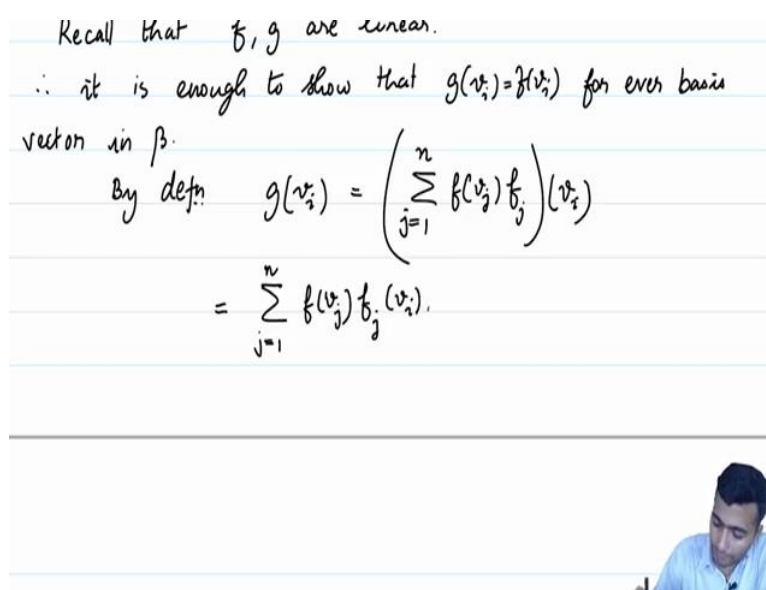 Recall that f, g are linear.
∴ it is enough to show that g(v_i) = f(v_i) for ever basis
vector in β.
By defn g(v_i) = (∑_{j=1}^{n} f(v_j) f_j)(v_i)
= ∑_{j=1}^{n} f(v_j) f_j(v_i).